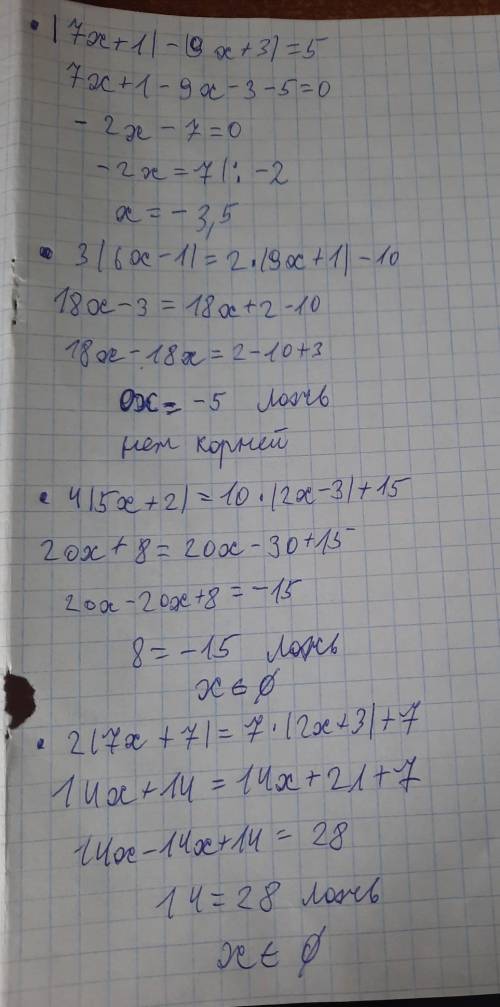 • |7x+1|-(9x+3)=5
7x+1-9x-3-5=0
-2x-7=0
-2x=7|:-2
x=-3,5
• 3(6x-1)=2·(9x+1)-10
18x-3=18x+2-10
18x-18x=2-10+3
0x=-5 ложь
нет корней
• 4(5x+2)=10·(2x-3)+15
20x+8=20x-30+15
20x-20x+8=-15
8=-15 ложь
x∈∅
• 2(7x+7)=7·(2x+3)+7
14x+14=14x+21+7
14x-14x+14=28
14=28 ложь
x∈∅